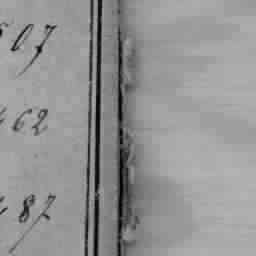 07
62
87